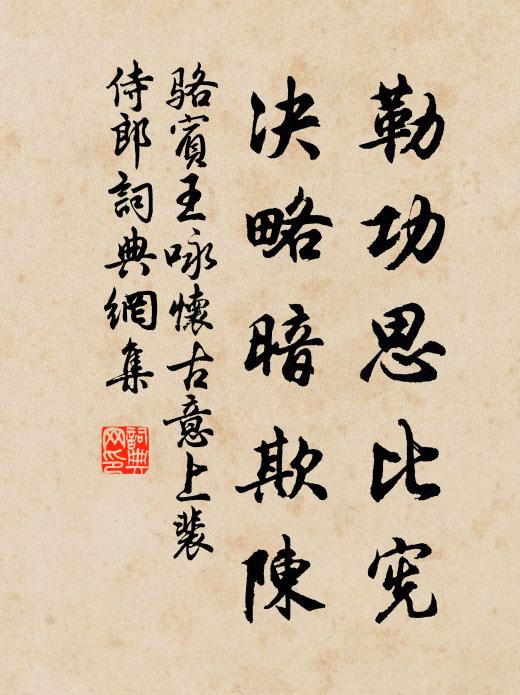 勒功思比宪
决略暗欺陳
骆賓王咏懷古意上裴
侍郎詞典網集
詞典网印